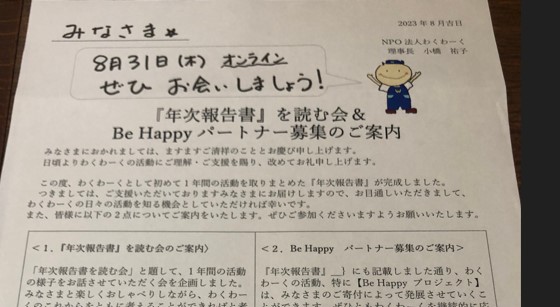 みなさま☆
2023年8月吉日
NPO法人わくわーく
理事長 小橋 祐子
8月31日(木) オンライン
ぜひ お会いしましょう!
『年次報告書』を読む会&
Be Happy パートナー募集のご案内
みなさまにおかれましては、ますますご清祥のこととお慶び申し上げます。
日頃よりわくわーくの活動にご理解・ご支援を賜り、改めてお礼申し上げます。
この度、わくわーくとして初めて1年間の活動を取りまとめた『年次報告書』が完成しました。
つきましては、ご支援いただいておりますみなさまにお届けしますので、お目通しいただきまして、
わくわーくの日々の活動を知る機会としていただければ幸いです。
また、皆様に以下の2点についてご案内をいたします。ぜひご参加くださいますようお願いいたします。
<1.『年次報告書』を読む会のご案内>
「年次報告書を読む会」と題して、1年間の活動
の様子をお話させていただく会を企画しました。
みなさまと楽しくおしゃべりしながら、わくわー
<2. Be Happy パートナー募集のご案内>
『年次報告書』__}にも記載しました通り、わく
わーくの活動、特に【Be Happy プロジェクト】
は、みなさまのご寄付によって発展させていくこ